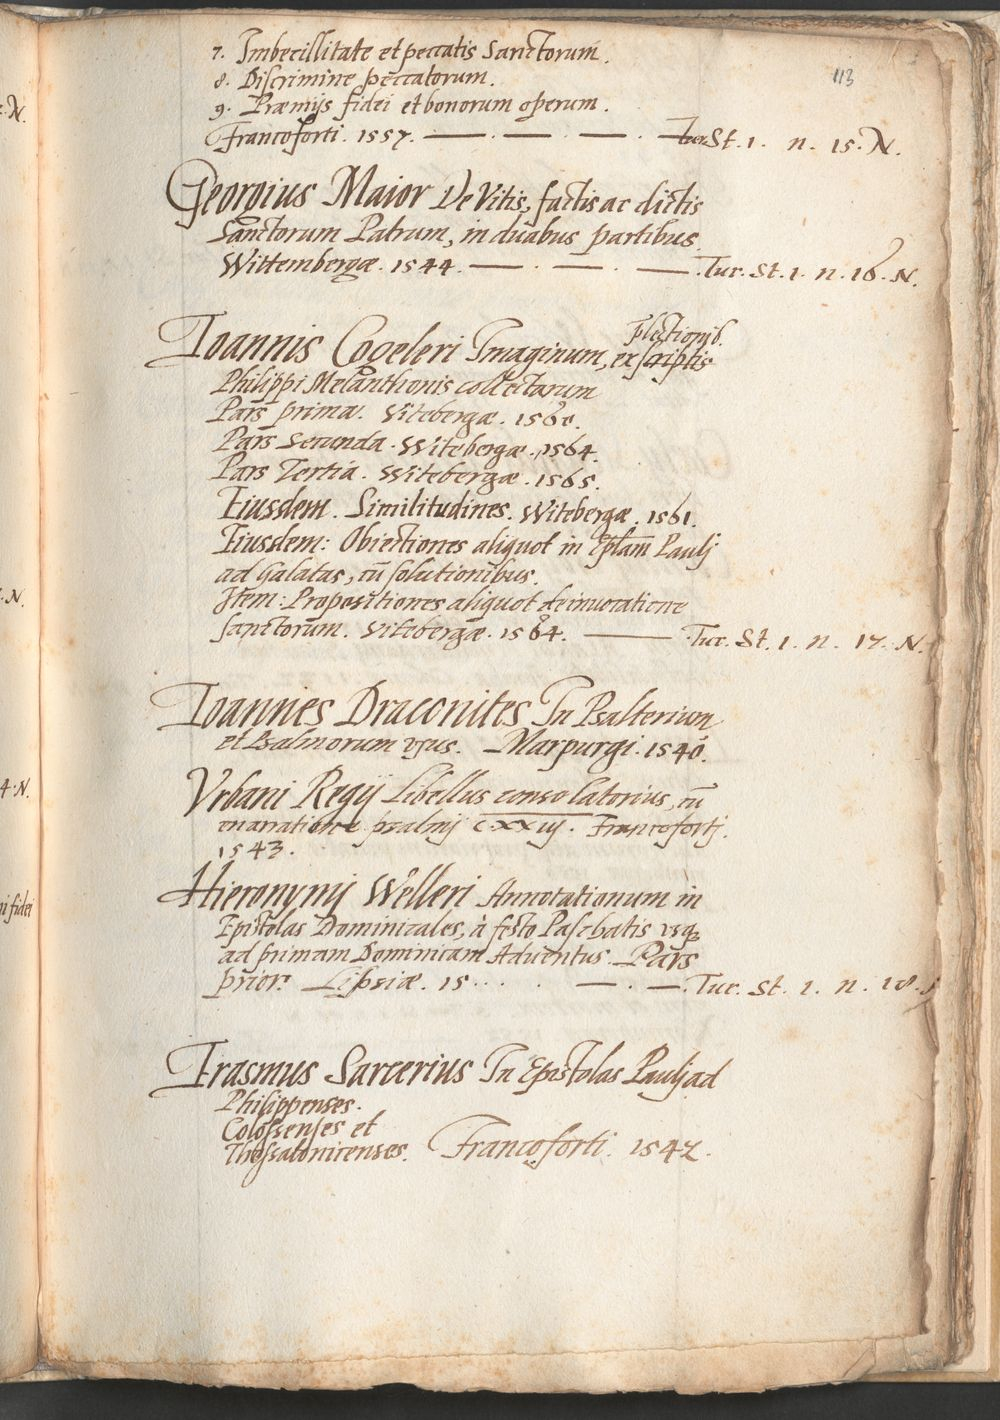 113
7. Imbecillitate et peccatis Sanctorum.
8. Discrimine peccatorum.
9. Præmijs fidei et bonorum operum.
Francoforti. 1557. — . — . — . — St. 1. n. 15. N.
Georgius Maior De Vitis, factis ac dictis
Sanctorum Patrum, in duabus partibus.
Wittembergæ. 1544. — . — . — . Tur. St. 1. n. 16. N.
Ioannis Cogeleri Imaginum, ex scriptis
Philippi Melanthonis collectarum
Pars prima. Vitebergæ. 1560.
Pars Secunda. Witebergæ. 1564.
Pars Tertia. Witebergæ. 1565.
Eiusdem. Similitudines. Witebergæ. 1561.
Eiusdem: Obiectiones aliquot in Eplam Paulj
ad Galatas, cū solutionibus.
Item: Propositiones aliquot de inuocatione
Sanctorum. Vitebergæ. 1564. — Tur. St. 1. n. 17. N.
Ioannes Draconites In Psalterium
et Psalmorum vsus. Marpurgi. 1546.
Vrbani Regij Libellus consolatorius, cū
enarratione psalmj CXXIIJ. Francofortj.
1543.
Hieronymj Welleri Annotationum in
Epistolas Dominicales, à festo Paschatis vsq3
ad primam Dominicam Aduentus. Pars
prior. Lipsiæ. 15 . . . . — . — . Tur. St. 1. n. 18.
Erasmus Sarcerius In Epistolas Paulj ad
Philippenses.
Colossenses et
Thessalonicenses. Francoforti. 1542.
N.
N.
4. N.
fidei